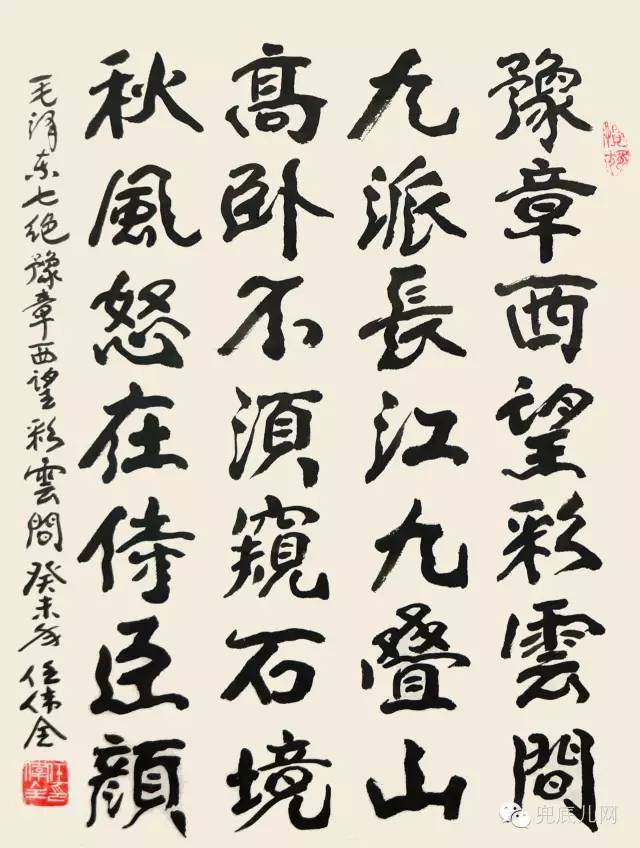 豫章西望彩雲間
九派長江九叠山
高卧不須窺石境
秋風怒在侍臣顔
毛泽东七绝豫章西望彩雲間癸未年任伟全
兜底儿网